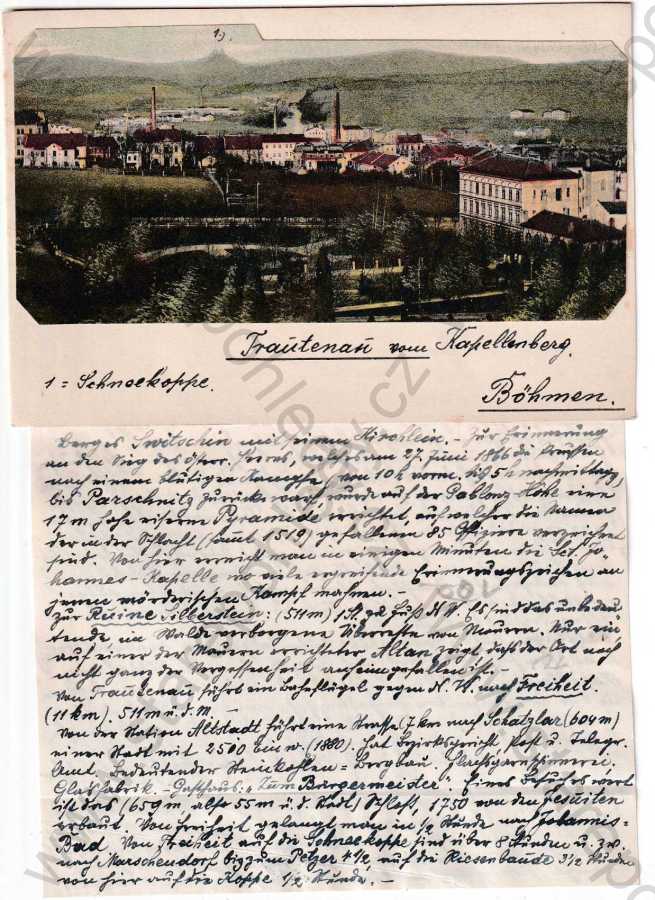 1).
Trautenau vom Kapellenberg.
1 = Schneekoppe.
Böhmen.
berges Switschin mit seinem Kirchlein. – Zur Erinnerung
an den Sieg des österr. Heeres, welches am 27. Juni 1866 die Preussen
nach einem blutigen Kampfe, von 10 h vorm. bis 5 h nachmittags,
bis Parschnitz zurück warf wurde auf der Gablenz Höhe eine
17 m hohe eiserne Pyramide errichtet, auf welcher die Namen
der in der Schlacht (samt 1519) gefallenen 85 Offiziere verzeichnet
sind. Von hier erreicht man in einigen Minuten die Sct. Jo-
hannes-Kapelle wo viele ergreifende Erinnerungszeichen an
jenen mörderischen Kampf mahnen. –
Zur Ruine Silberstein: (511 m) 1 St. zu Fuß N.W. Es sind das unbedeu-
tende im Walde verborgene Überreste von Mauern. Nur ein
auf einer der Mauern errichteter Altan zeigt, daß der Ort noch
nicht ganz der Vergessenheit anheimgefallen ist. –
Von Trautenau führt ein Bahnflügel gegen N.W. nach Freiheit.
(11 km). 511 m ü. d. M. –
Von der Station Altstadt führt eine Strasse (7 km nach Schatzlar (604 m)
einer Stadt mit 2500 Einw. (1880). hat Bezirksgericht Post u. Telegr.
Amt. Bedeutender Steinkohlen = Bergbau, Flachsgarnspinnerei.
Glasfabrik. – Gasthaus: "Zum Bürgermeister". Eines Besuches wert
ist das (659 m, also 55 m ü. d. Stadt) Schloß, 1750 von den Jesuiten
erbaut. Von Freiheit gelangt man in 1/2 Stunde nach Johannis-
Bad. Von Freiheit auf die Schneekoppe sind über 8 Stunden u. zw.
nach Marschendorf bis zum Petzer 4 1/2, auf die Riesenbaude 3 1/2 Stunden
von hier auf die Koppe 1/2 Stunde. –